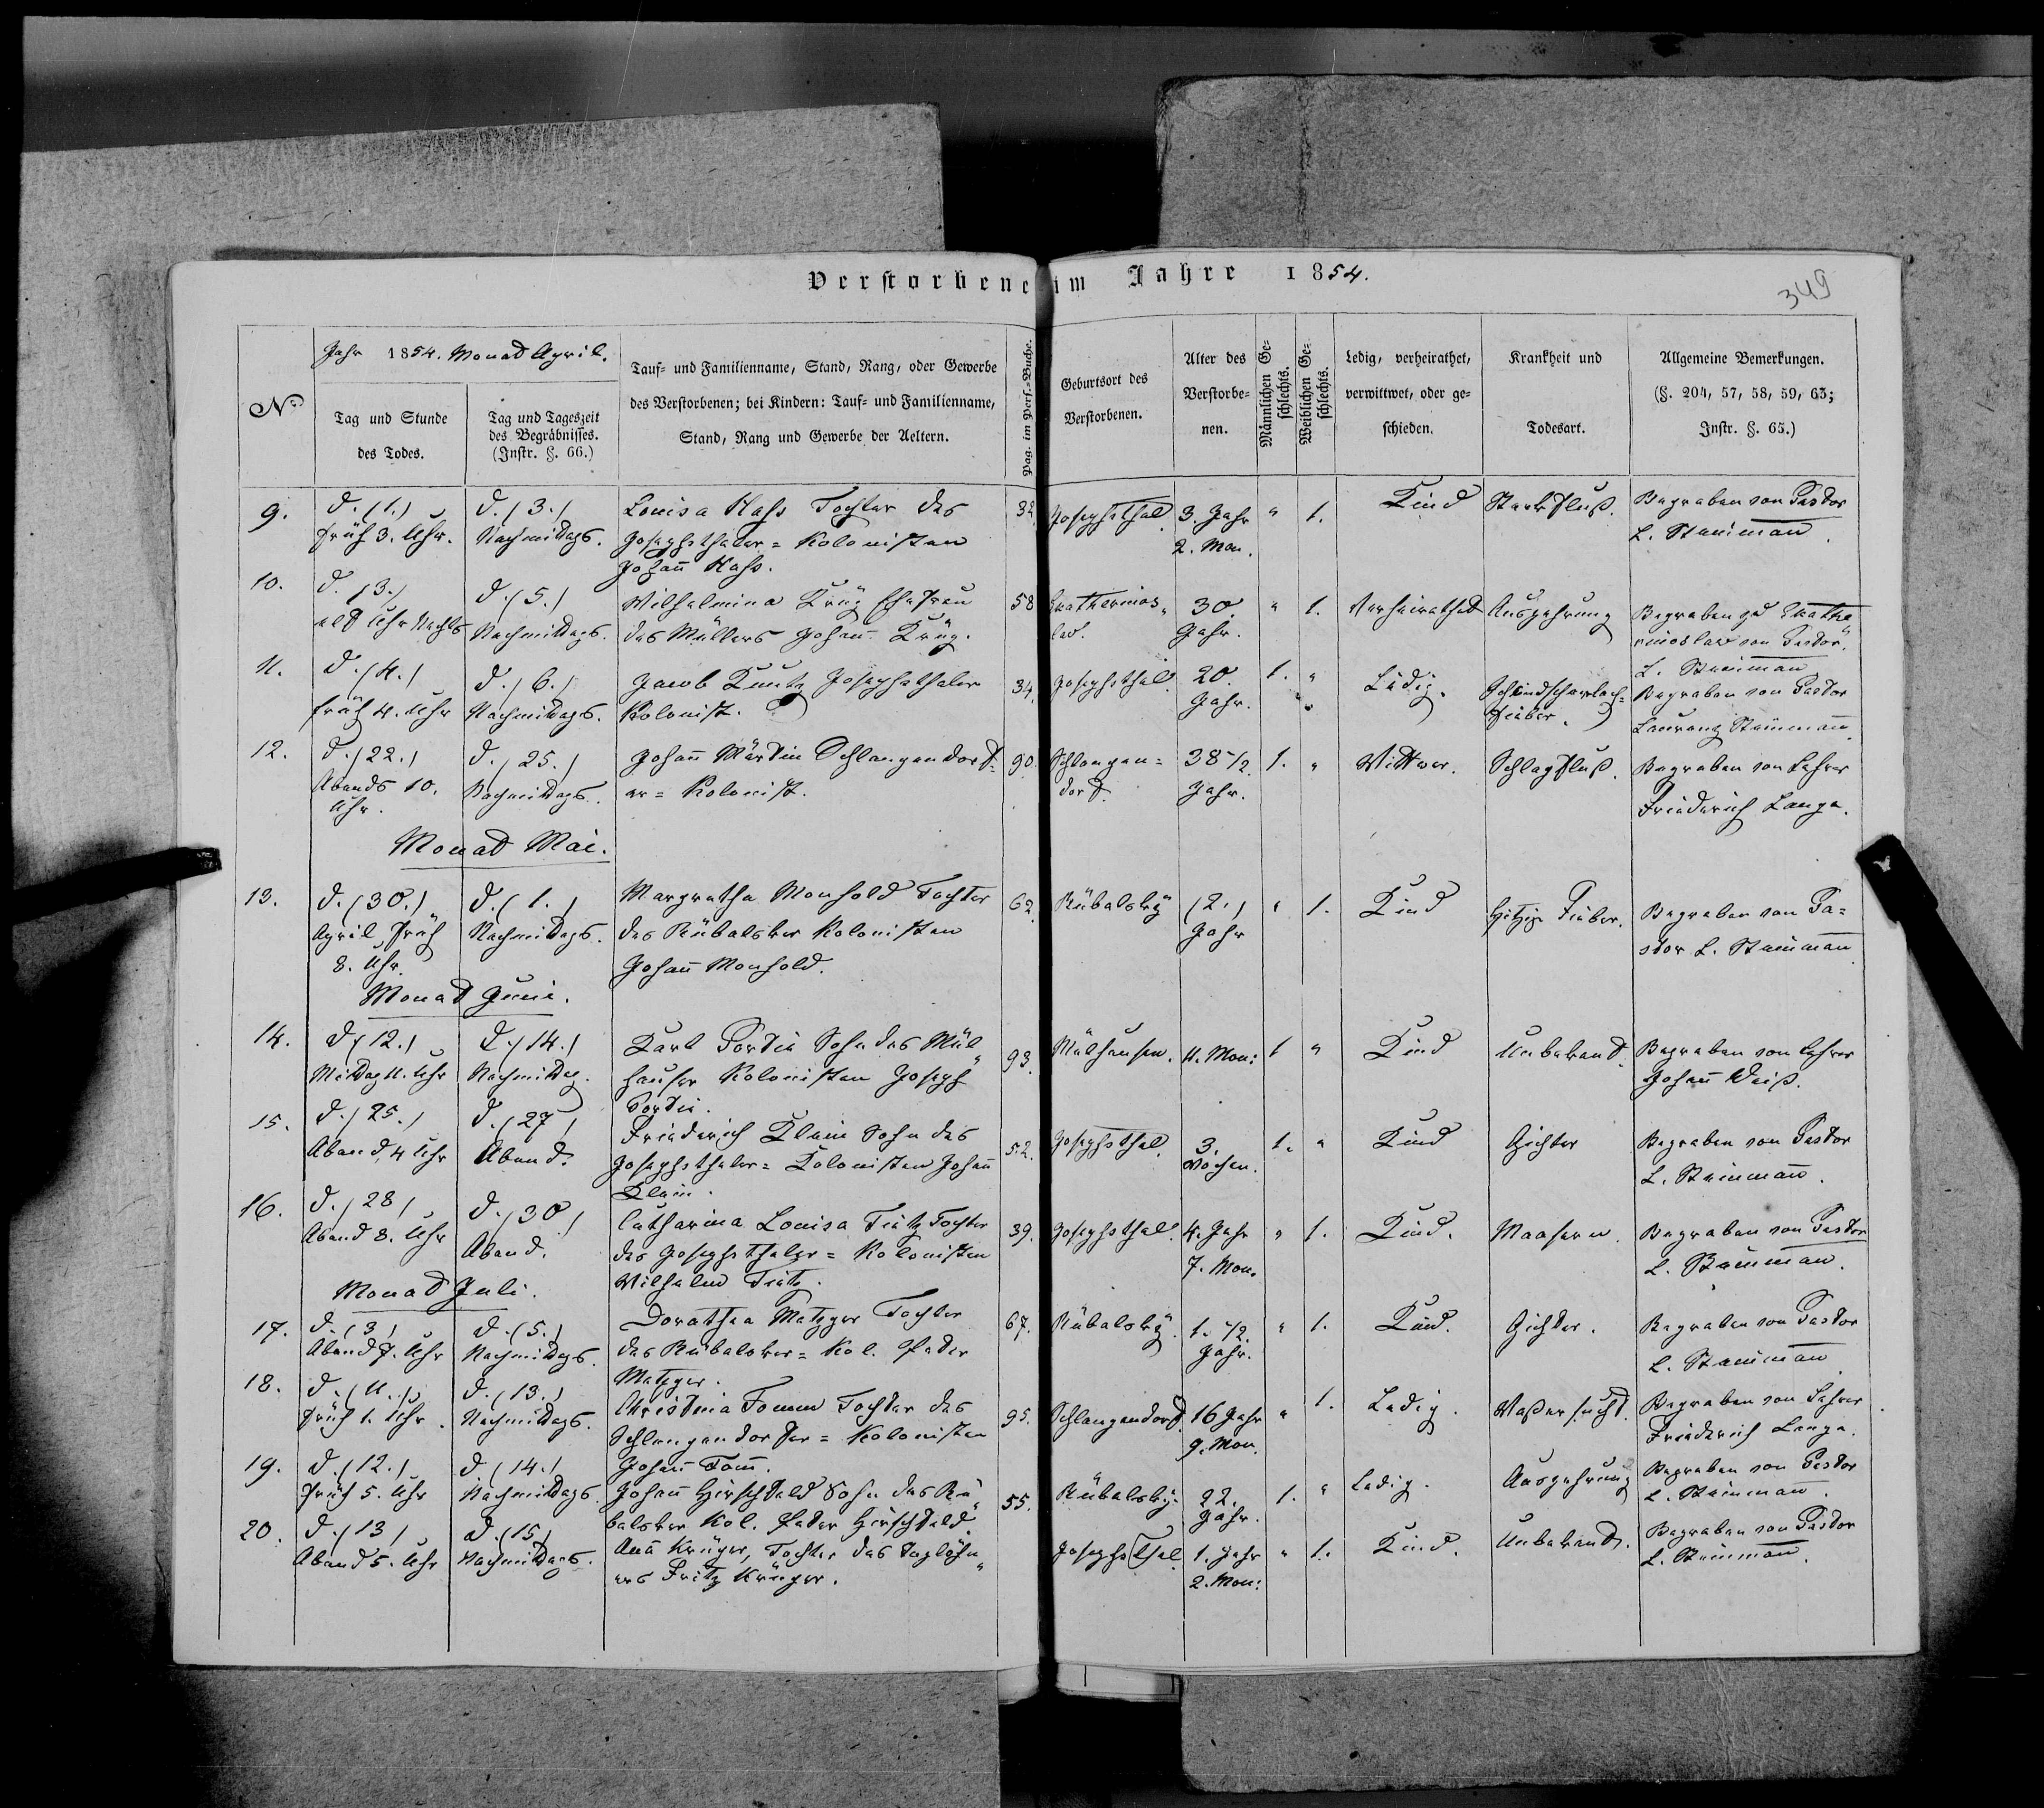 Verstorbene im Jahre 1854.
349
No
Jahr 1854. Monad April.
Tag und Stunde
des Todes.
Tag und Tageszeit
des Begräbnisses.
(Instr. §. 66.)
Tauf- und Familienname, Stand, Rang, oder Gewerbe
des Verstorbenen; bei Kindern: Tauf- und Familienname,
Stand, Rang und Gewerbe der Aeltern.
Pag. im Pers.-Buche.
Geburtsort des
Verstorbenen.
Alter des
Verstorbe-
nen.
Männlichen Ge-
schlechts.
Weiblichen Ge-
schlechts.
Ledig, verheirathet,
verwittwet, oder ge-
schieden.
Krankheit und
Todesart.
Allgemeine Bemerkungen.
(§. 204, 57, 58, 59, 63;
Instr. §. 65.)
9.
d. (1.)
früh 3. Uhr.
d. (3.)
Nachmidags.
Louisa Hass Tochter des
Josephsthaler= Kolonisten
Johann Hass.
32.
Josephsthal.
3. Jahr
2. Mon.
" 1.
Kind
Stockfluß.
Begraben von Pastor
L. Steinman.
10.
d. (3.)
elf Uhr Nachts
d. (5.)
Nachmidags.
Wilhelmina Krüg Ehefrau
des Müllers Johann Krüg.
58
Ekatherinos„
law.
30.
Jahr.
" 1.
Verheirathed
Auszehrung
Begraben zu Ekathe„
rinoslaw von Pastor
L. Steinman
11.
d. (4.)
früh 4. Uhr
d. (6.)
Nachmidags.
Jacob Kuntz Josephsthaler
Kolonist.
34.
Josephsthal
20.
Jahr.
1. "
Ledig.
fieber.
Begraben von Pastor
Laurenz Steinmann.
12.
d. (22.)
Abends 10.
Uhr.
d. (25.)
Nachmidags.
Johann Märdin Schlangendorf=
er= Kolonist.
90.
Schlangen=
dorf.
38 1/2.
Jahr.
1. "
Wittwer.
Schlagfluß.
Begraben von Lehrer
Friederich Lange.
Monad Mai.
13.
d. (30.)
April früh
8. Uhr.
d. (1.)
Nachmidags.
Margretha Monhold Tochter
des Rübalsker Kolonisten
Johann Monhold.
62.
Rübalsky
(2.)
Jahr
" 1.
Kind
Hitzige Fieber.
Begraben von Pa=
stor L. Steinmann.
Monad Juni.
14.
d. (12.)
Mittag 11. Uhr
d. (14.)
Nachmidag.
Karl Fordei Sohn des Mül„
hauser Kolonisten Joseph
Fordei.
93.
Mülhausen.
11. Mon:
1 "
Kind
Unbekand
Begraben von Lehrer
Johann Weiß.
15.
d. (25.)
Abend, 4 Uhr
d. (27)
Abend.
Friederich Klein Sohn des
Josephsthaler= Kolonisten Johann
Klein.
52.
Josephsthal.
3.
Wochen.
1. "
Kind
Gichter
Begraben von Pastor
L. Steinmann.
16.
d. (28)
Abend 8. Uhr
d. (30)
Abend.
Catharina Louisa Tietz Tochter
des Josephsthaler= Kolonisten
Wilhelm Tietz.
39.
Josephsthal.
4. Jahr
7. Mon.
" 1.
Kind.
Maasern.
Begraben von Pastor
L. Steinman.
Monad Juli.
17.
d. (3)
Abend 7. Uhr
d. (5.)
Nachmidags.
Dorathea Metzger Tochter
des Rübalsker= Kol. Peder
Metzger.
67.
Rübalsky.
1. 1/2.
Jahr.
" 1.
Kind.
Gichter.
Begraben von Pastor
L. Steinman
18.
d. (11.)
früh 1. Uhr.
d. (13.)
Nachmidags.
Christina Tomm Tochter des
Schlangendorfer= Kolonisten
Johann Tomm.
95.
Schlangendorf
16 Jahr
9. Mon.
" 1.
Ledig.
Waßersucht.
Begraben von Lehrer
Friederich Lange.
19.
d. (12.)
früh 5. Uhr
d. (14.)
Nachmidags.
Johann Hirschfeld Sohn des Rü„
balsker Kol. Peder Hirschfeld.
55.
Rübalsky.
22.
Jahr.
1. "
Ledig.
Auszehrung
Begraben von Pastor
L. Steinman.
20.
d. (13)
Abend 5. Uhr
d. (15)
Nachmidags.
Anna Krüger, Tochter des Taglöhn„
ers Fritz Krüger.
Josephsthal
1. Jahr
2. Mon:
" 1.
Kind.
Unbekand.
Begraben von Pastor
L. Steinman.